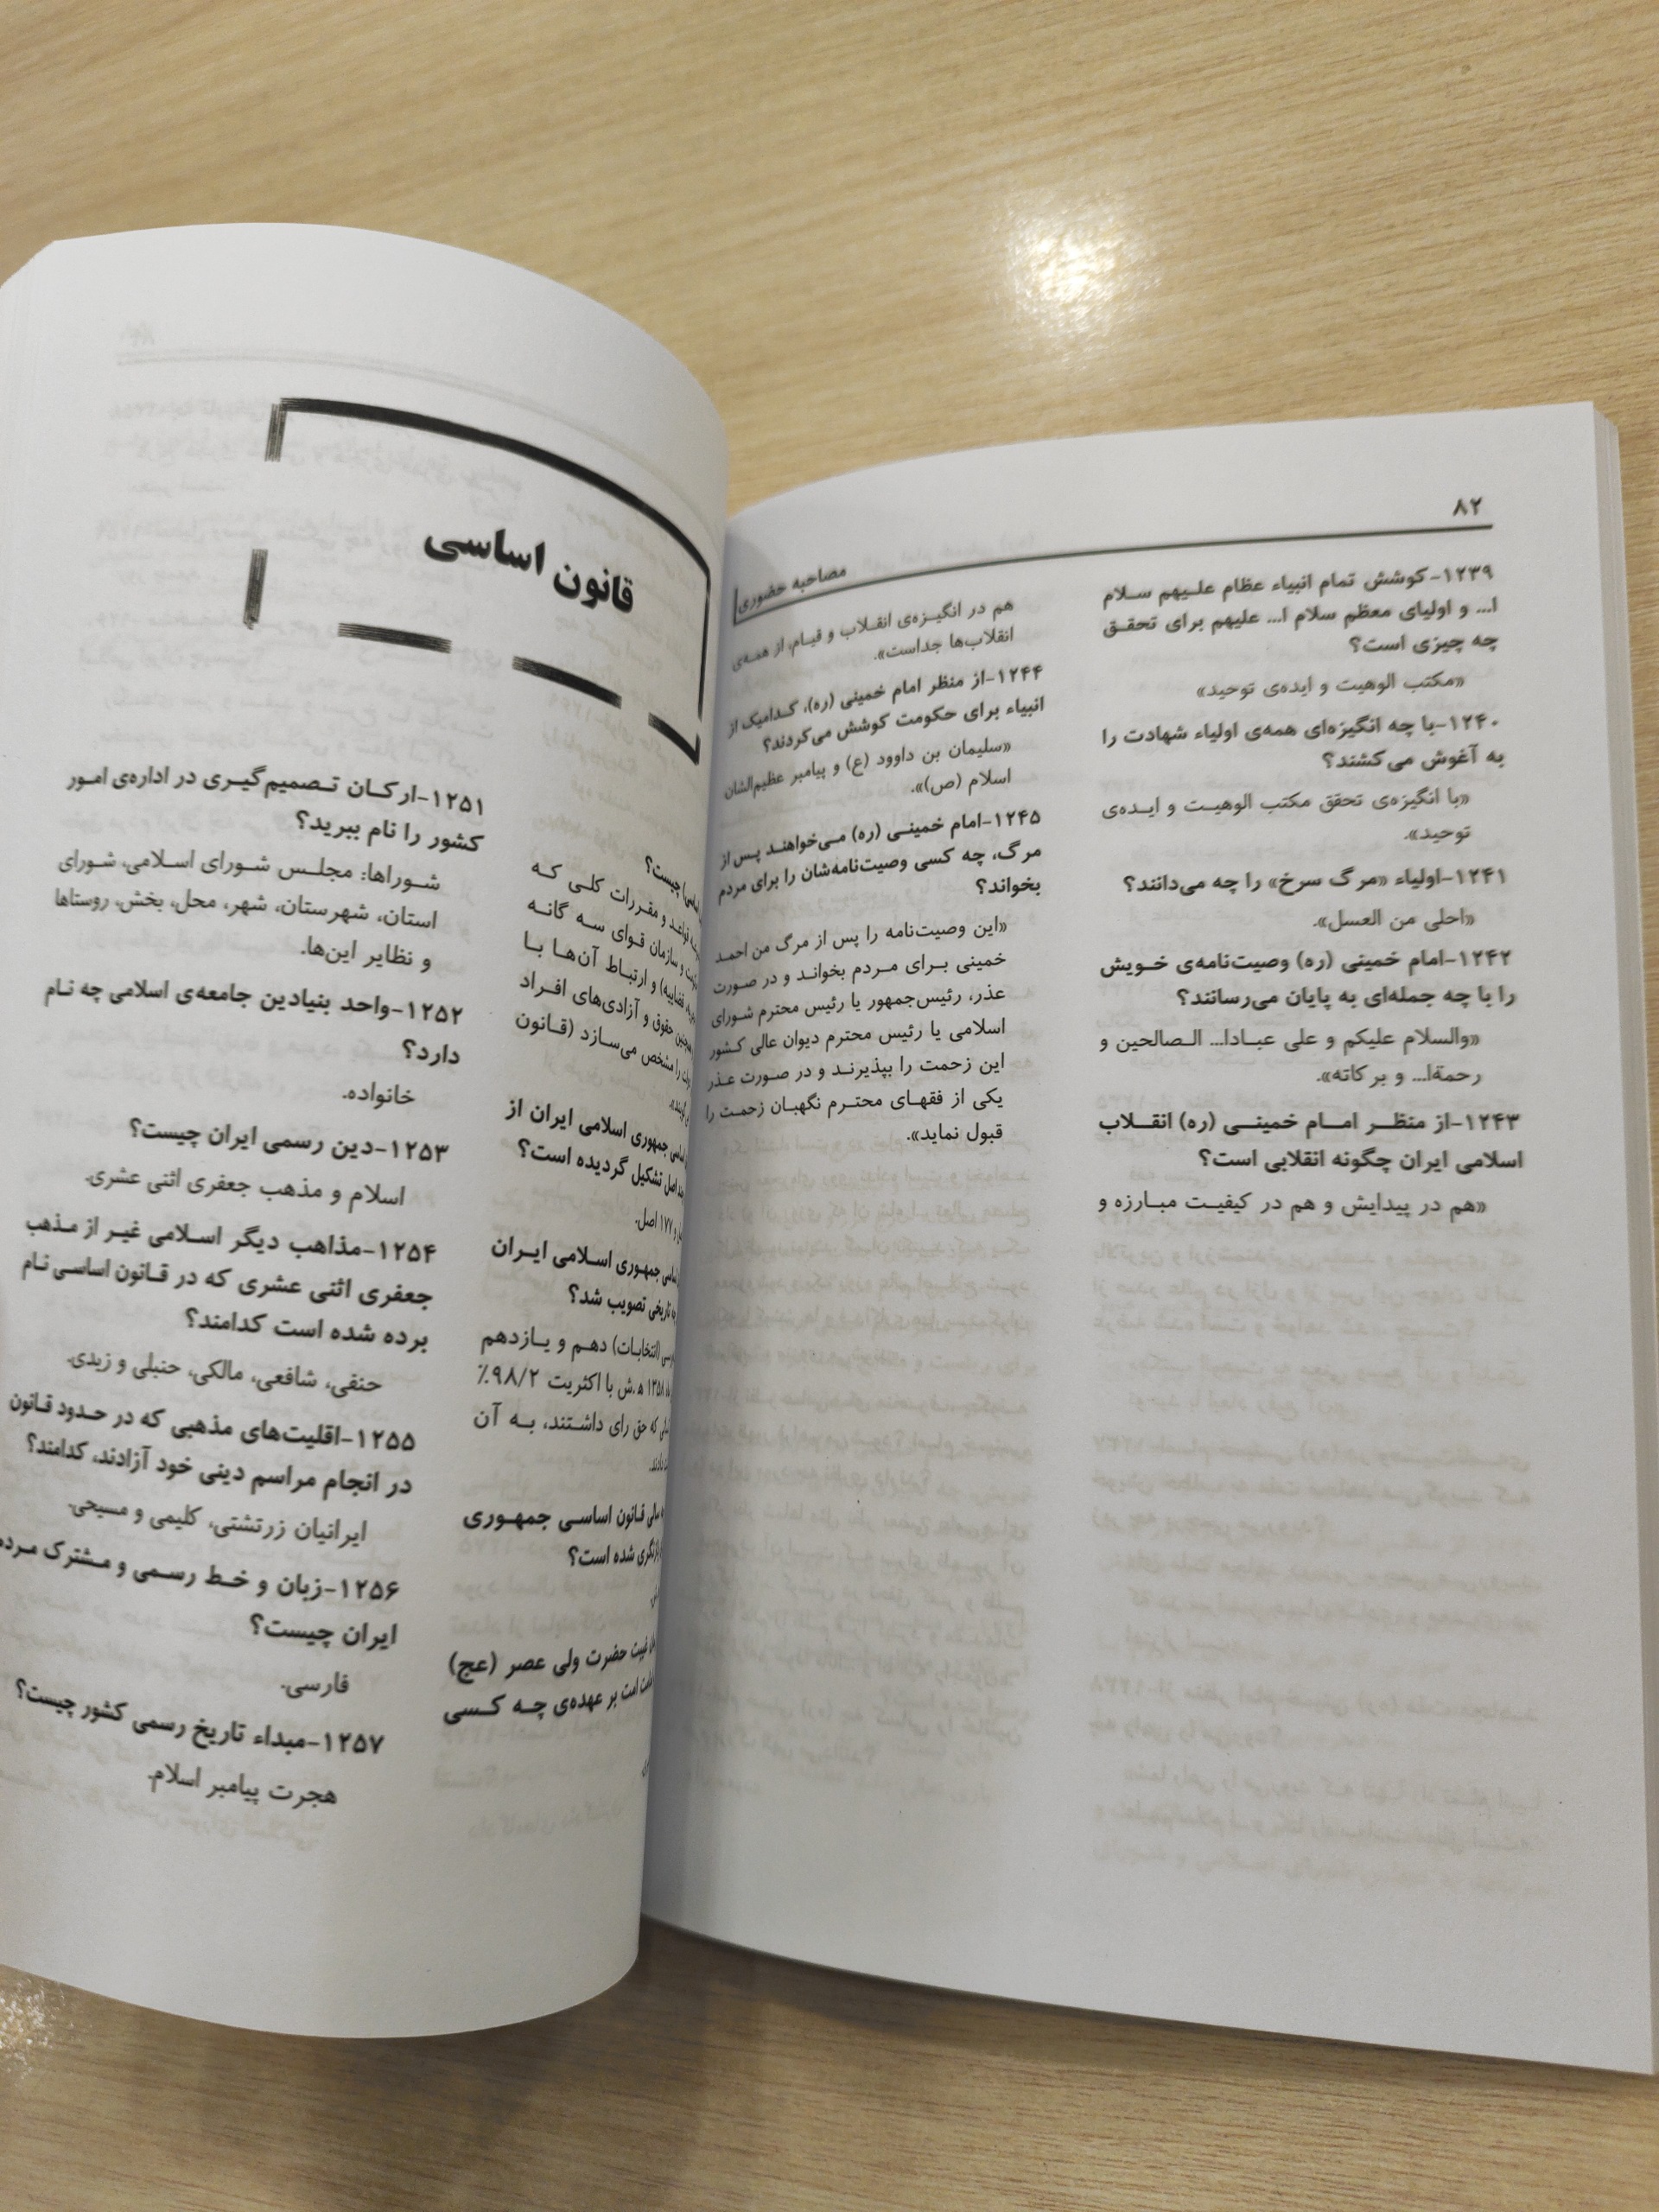 ۸۲
مصاحبه حضوری
۱۲۳۹-کوشش تمام انبیاء عظام علـیهم سـلام
ا... و اولیای معظم سلام ا... علیهم برای تحقـق
چه چیزی است؟
«مکتب الوهیت و ایده‌ی توحید»
۱۲۴۰-با چه انگیزه‌ای همه‌ی اولیاء شهادت را
به آغوش می‌کشند؟
«با انگیزه‌ی تحقق مکتب الوهیـت و ایـده‌ی
توحید».
۱۲۴۱-اولیاء «مرگ سرخ» را چه می‌دانند؟
«احلی من العسل».
۱۲۴۲-امام خمینی (ره) وصیت‌نامه‌ی خـویش
را با چه جمله‌ای به پایان می‌رسانند؟
«والسلام علیکم و علی عبـادا... الـصالحین و
رحمةا... و برکاته».
۱۲۴۳-از منظـر امـام خمینـی (ره) انقـلاب
اسلامی ایران چگونه انقلابی است؟
«هم در پیدایش و هم در کیفیـت مبـارزه و
هم در انگیـزه‌ی انقـلاب و قیـام، از همـه‌ی
انقلاب‌ها جداست».
۱۲۴۴-از منظر امام خمینی (ره)، کـدامیک از
انبیاء برای حکومت کوشش می‌کردند؟
«سلیمان بن داوود (ع) و پیامبر عظیم‌الشان
اسلام (ص)».
۱۲۴۵-امام خمینـی (ره) مـی‌خواهنـد پـس از
مرگ، چه کسی وصیت‌نامه‌شان را برای مردم
بخواند؟
«این وصیت‌نامه را پس از مرگ من احمـد
خمینی بـرای مـردم بخوانـد و در صـورت
عذر، رئیس‌جمهور یا رئیس محترم شـورای
اسلامی یا رئیس محترم دیوان عالی کـشور
این زحمت را بپذیرنـد و در صـورت عـذر
یکی از فقهـای محتـرم نگهبـان زحمـت را
قبول نماید».
قانون اساسی
چیست؟
قواعد و مقـررات کلـی کـه
و سازمان قـوای سـه گانـه
قضاییه) و ارتبـاط آن‌هـا بـا
حقوق و آزادی‌های افـراد
را مشخص می‌سـازد (قـانون
جمهوری اسلامی ایران از
اصل تشکیل گردیده است؟
و ۱۷۷ اصل.
جمهـوری اسـلامی ایـران
تاریخی تصویب شد؟
(انتخابـات) دهـم و یـازدهم
۱۳۵۸ ه.ش با اکثریت ۹۸/۲٪
که حق رای داشـتند، بـه آن
قـانون اساسـی جمهـوری
بازنگری شده است؟
غیبت حضرت ولی عصر (عج)
امت بر عهده‌ی چـه کـسی
۱۲۵۱-ارکـان تـصمیم‌گیـری در اداره‌ی امـور
کشور را نام ببرید؟
شـوراها: مجلـس شـورای اسـلامی، شـورای
استان، شهرستان، شهر، محل، بخش، روستاها
و نظایر این‌ها.
۱۲۵۲-واحد بنیادین جامعه‌ی اسلامی چه نـام
دارد؟
خانواده.
۱۲۵۳-دین رسمی ایران چیست؟
اسلام و مذهب جعفری اثنی عشری.
۱۲۵۴-مذاهب دیگر اسـلامی غیـر از مـذهب
جعفری اثنی عشری که در قـانون اساسـی نـام
برده شده است کدامند؟
حنفی، شافعی، مالکی، حنبلی و زیدی.
۱۲۵۵-اقلیت‌های مذهبی که در حـدود قـانون
در انجام مراسم دینی خود آزادند، کدامند؟
ایرانیان زرتشتی، کلیمی و مسیحی.
۱۲۵۶-زبان و خـط رسـمی و مـشترک مـردم
ایران چیست؟
فارسی.
۱۲۵۷-مبداء تاریخ رسمی کشور چیست؟
هجرت پیامبر اسلام.